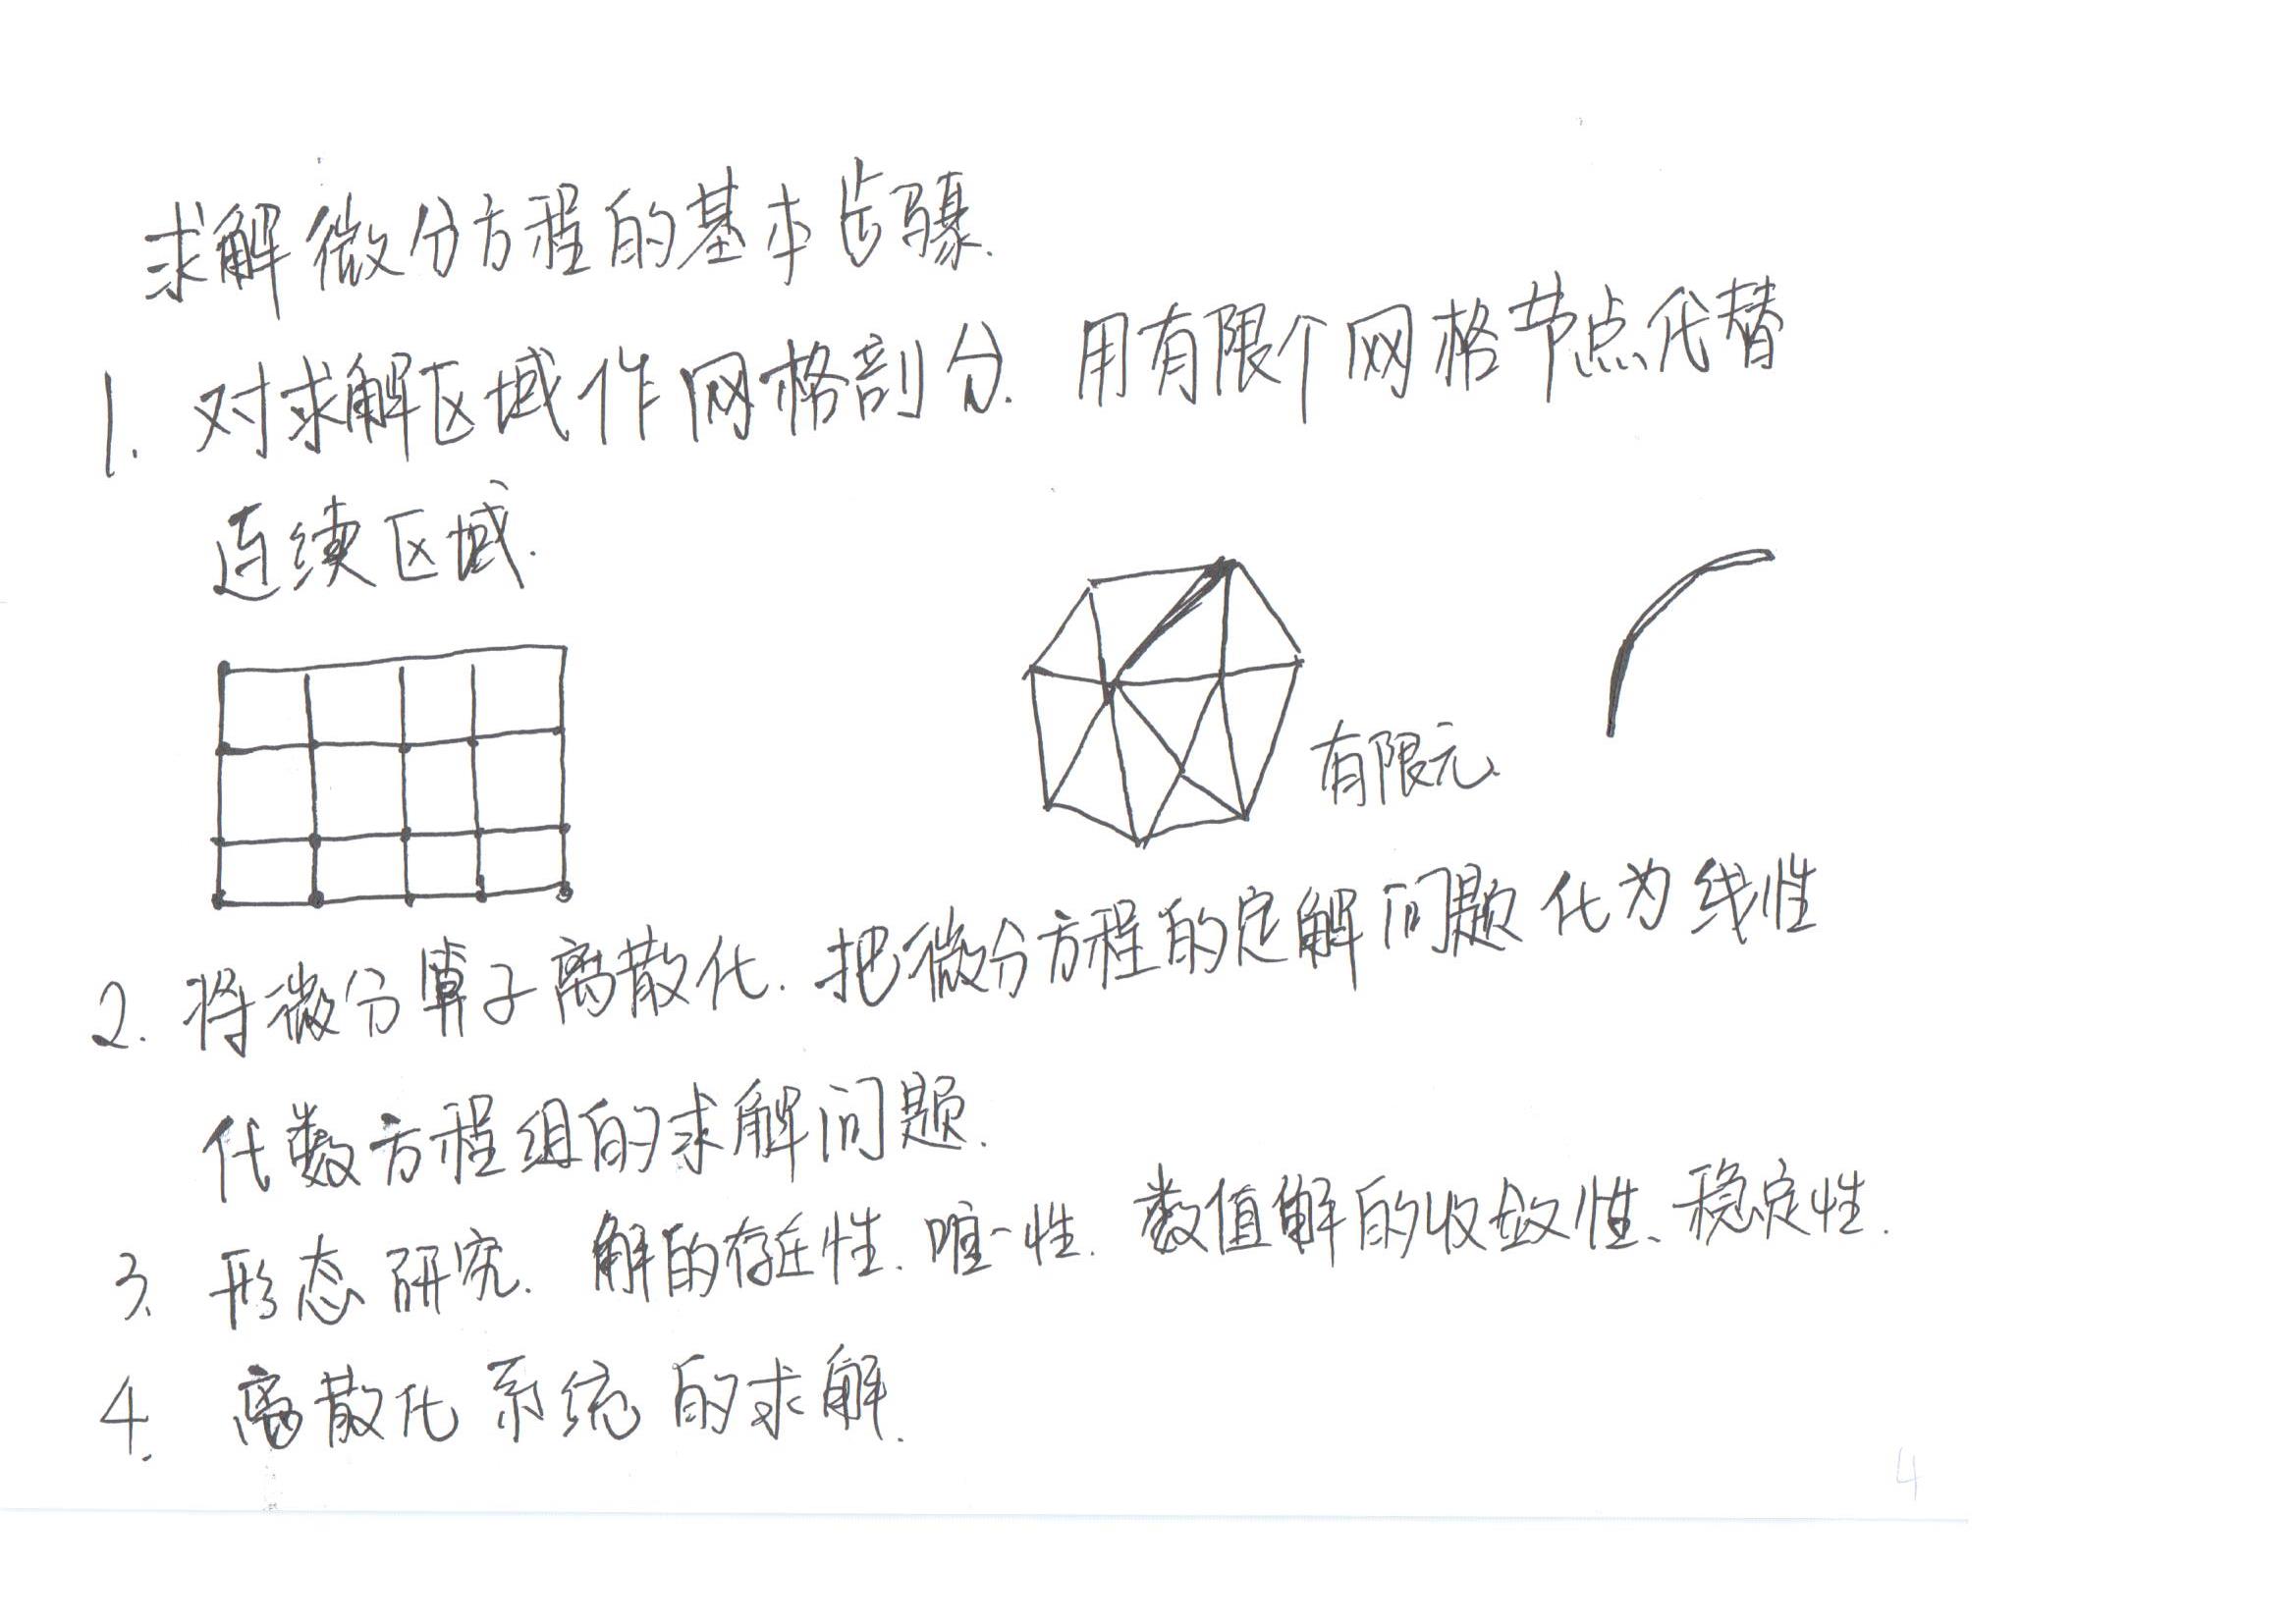 求解微分方程的基本步骤.
1. 对求解区域作网格剖分. 用有限个网格节点代替
连续区域.
有限元.
2. 将微分算子离散化. 把微分方程的定解问题化为线性
代数方程组的求解问题.
3. 形态研究. 解的存在性. 唯一性. 数值解的收敛性、稳定性.
4. 离散化系统的求解.
4